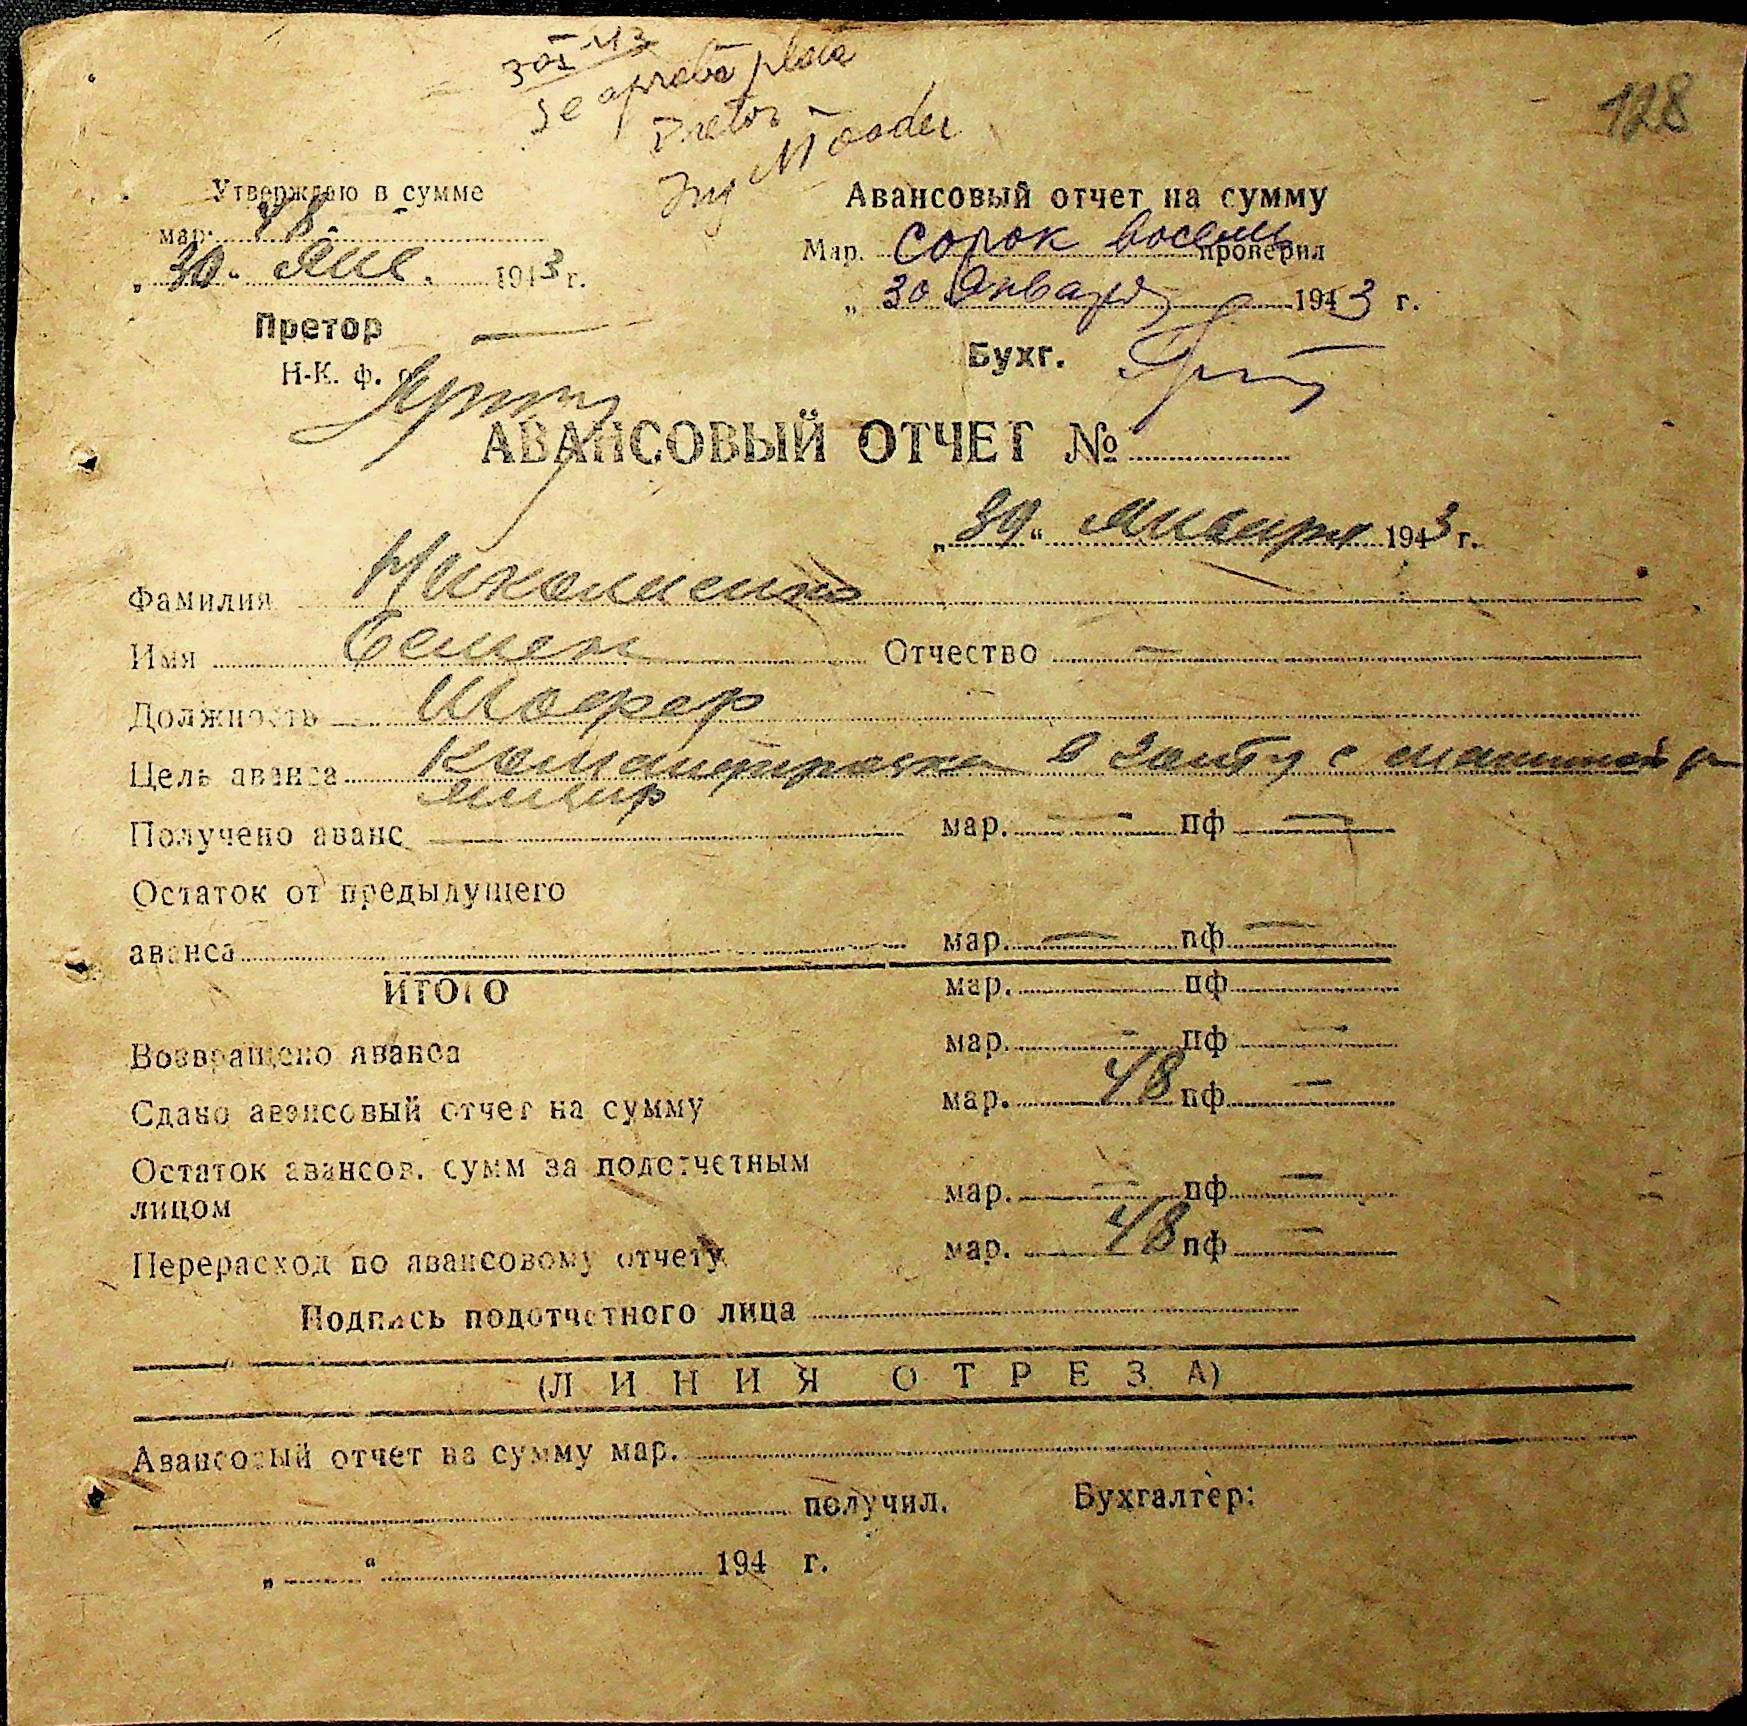 30 I 43
Se aprobă plata
Pretor
Ing
128
Утверждаю в сумме
мар. 48.
„ 30. Янв. 1943 г.
Претор —
Н-К. ф. о.
Авансовый отчет на сумму
Мар. Сорок восемь проверил
„ 30 Января 1943 г.
Бухг.
АВАНСОВЫЙ ОТЧЕТ №
„ 30 “ Января 1943 г.
Фамилия Николаенко
Имя Семен Отчество —
Должность Шофер
Цель аванса Командировка в Голту с машиной
Получено аванс — мар. — пф —
Остаток от предыдущего
аванса мар. — пф —
ИТОГО мар. пф
Возвращено аванса мар. — пф —
Сдано авансовый отчет на сумму мар. 48 пф —
Остаток авансов. сумм за подотчетным
лицом мар. — пф —
Перерасход по авансовому отчету мар. 48 пф —
Подпись подотчетного лица
(ЛИНИЯ ОТРЕЗА)
Авансовый отчет на сумму мар.
получил. Бухгалтер:
„ “ 194 г.